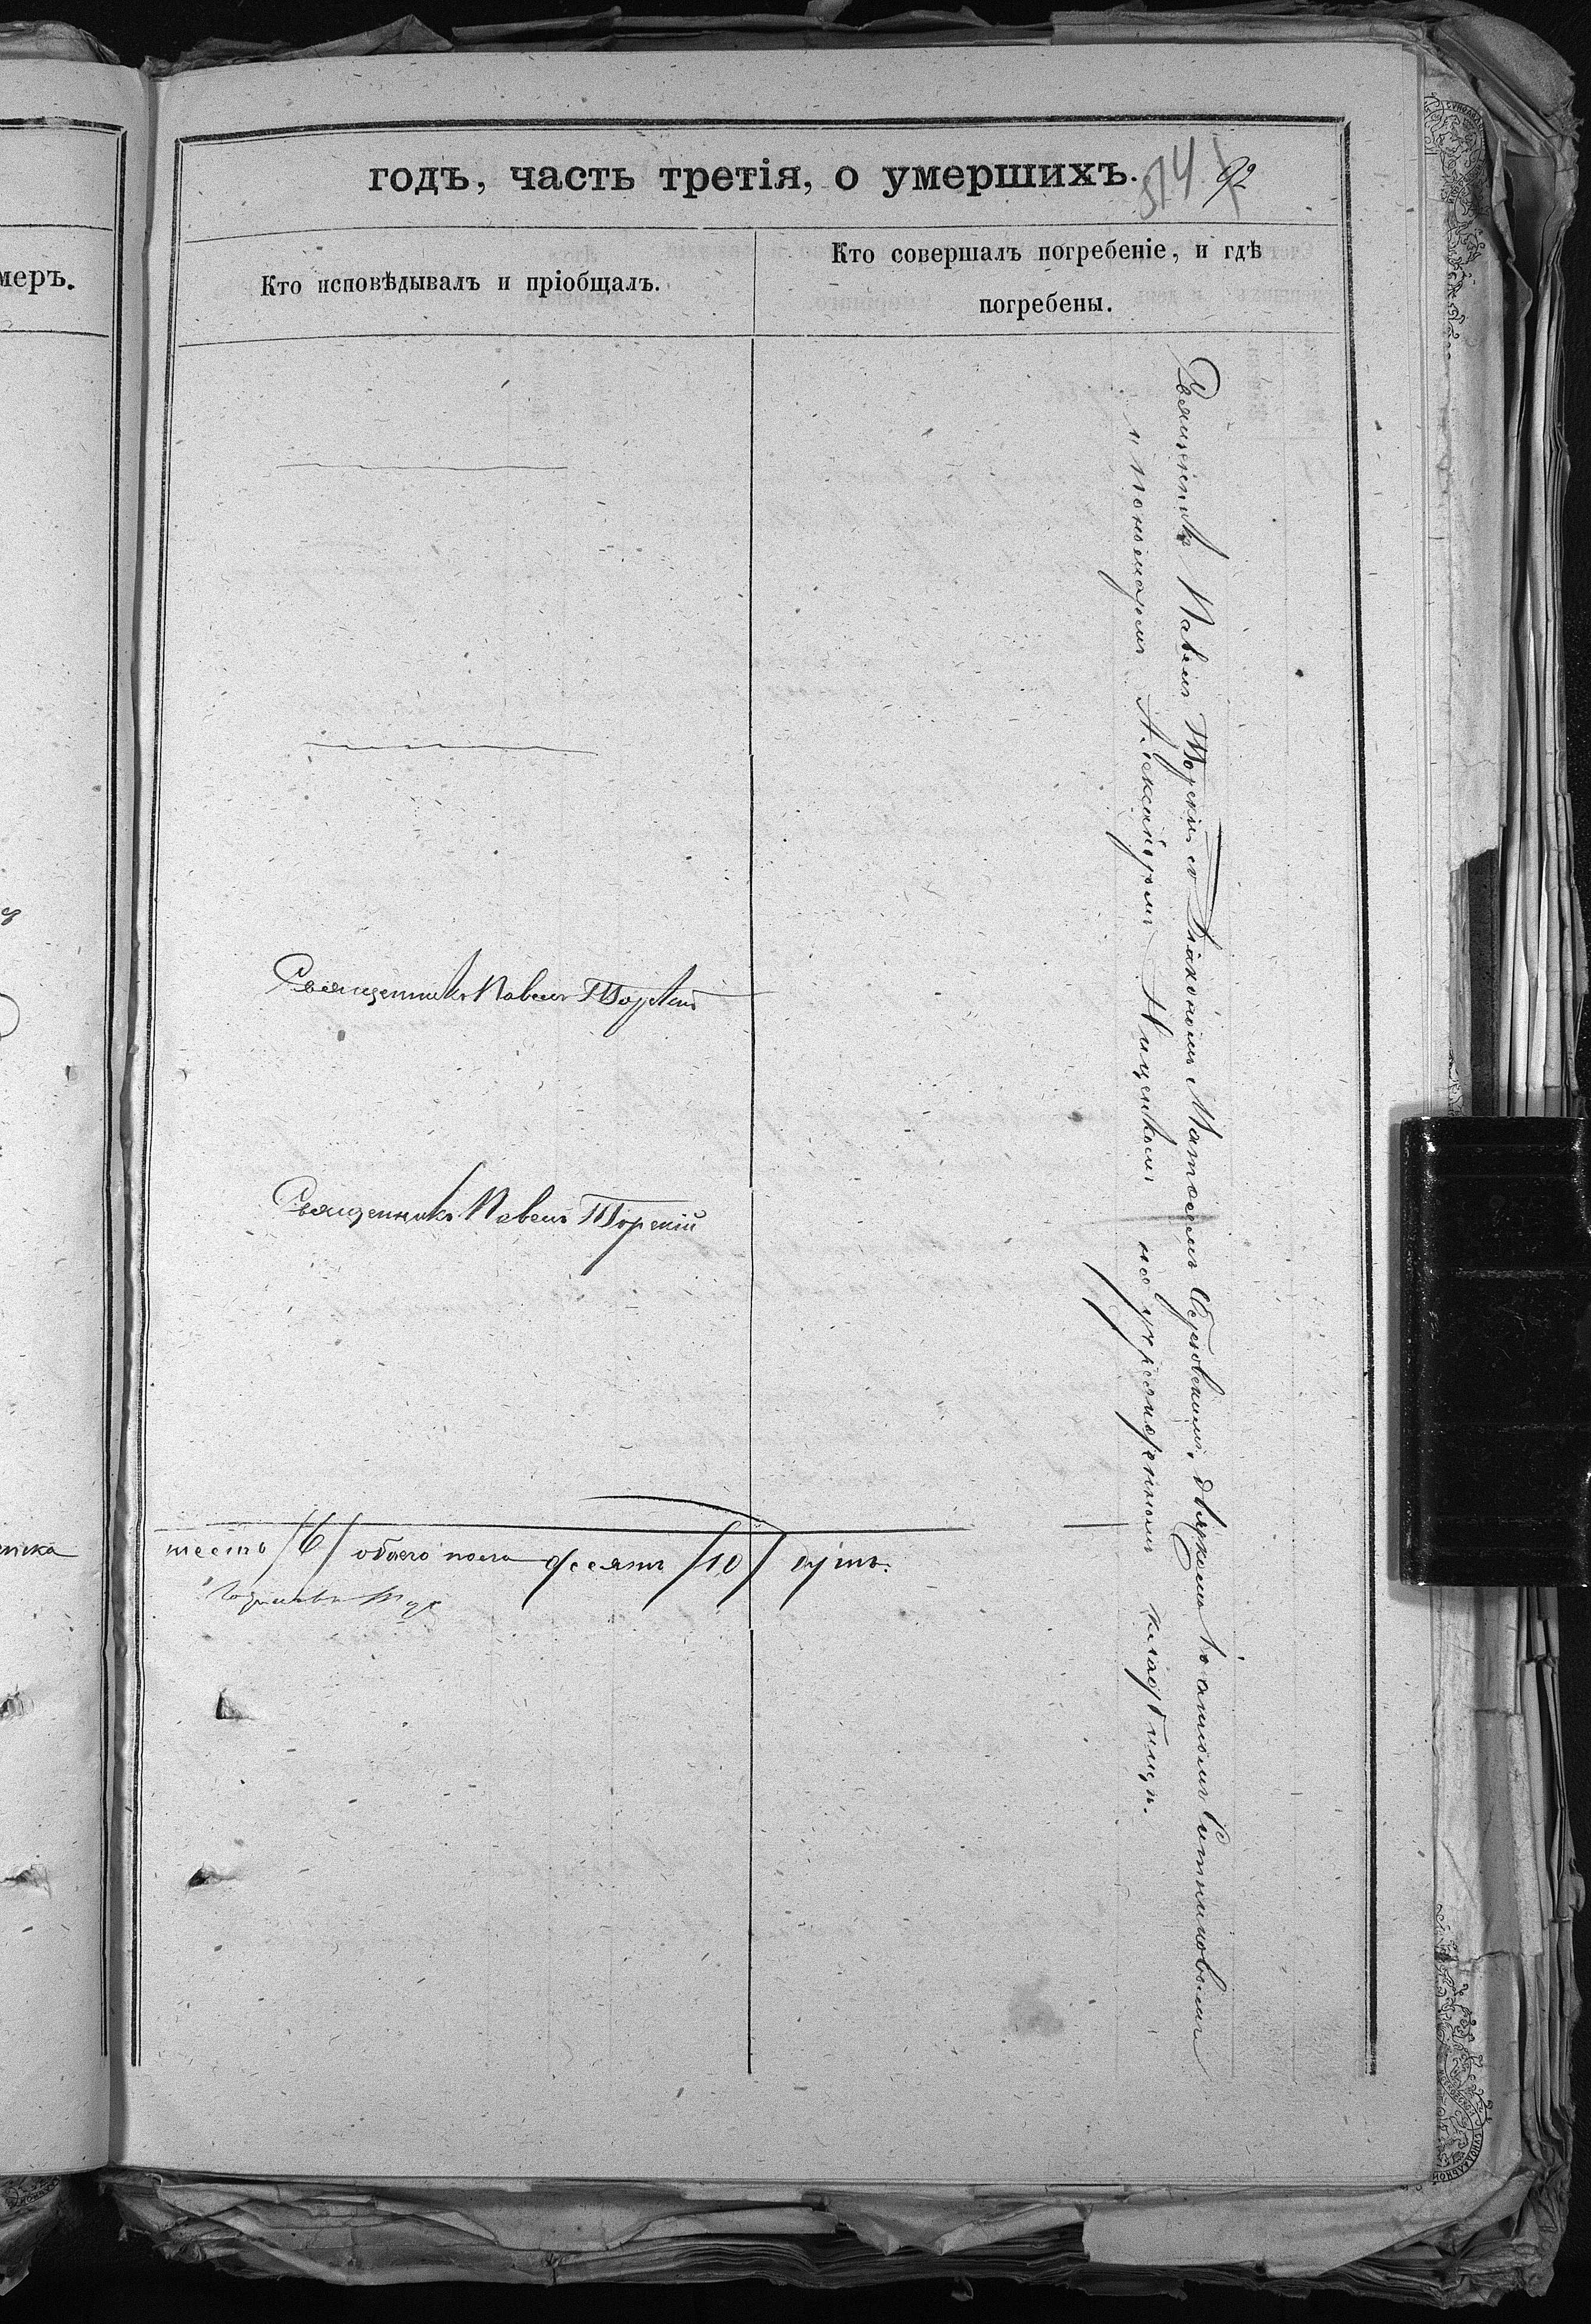 меръ.
годъ, часть третія, о умершихъ.
514
92
Кто исповѣдывалъ и пріобщалъ.
Кто совершалъ погребеніе, и гдѣ
погребены.
Священникъ Павелъ Торскій съ Діакономъ Матѳеемъ дьячкомъ Іоанномъ
и пономаремъ Александромъ Нищенкомъ на усреднномъ кладбищѣ.
Священникъ Павелъ Торскій
Священникъ Павелъ Торскій
шесть /6/ обоего пола десять /10/ душъ.